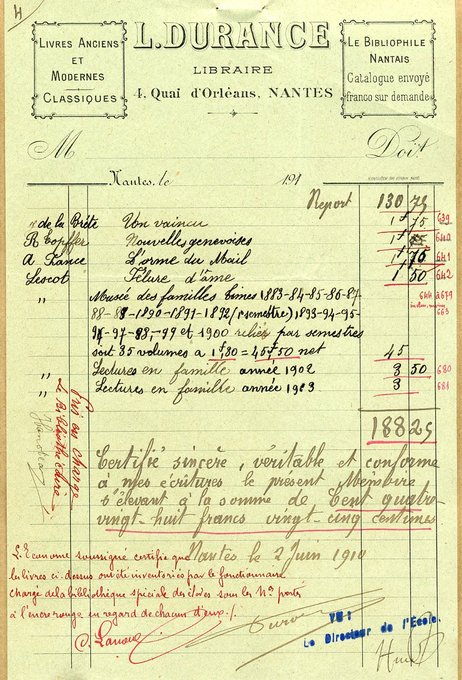 4
LIVRES ANCIENS
ET
MODERNES
CLASSIQUES
L. DURANCE
LIBRAIRE
4. Quai d'Orléans, NANTES
LE BIBLIOPHILE
NANTAIS
Catalogue envoyé
franco sur demande
M Doit
Nantes, le 191
Report 130 75
de la Brète Un vaincu 1 75 639
R Topffer Nouvelles genevoises 1 640
A France L'orme du Mail 1 75 641
Lescot Fêlure d'âme 1 50 642
" Musée des familles Times 1883-84-85-86-87-
88-89-1890-1891-1892 (1 semestre) 1893-94-95-
96-97-98-99 et 1900 reliés par semestres
soit 35 volumes a 1f30 = 45f50 net 45
" Lectures en famille année 1902 3 50 680
" Lectures en famille année 1903 3 681
188 25
Pris en charge
Le Bibliothécaire
Certifié sincère, véritable et conforme
à mes écritures le présent Mémoire
s'élevant à la somme de Cent quatre-
vingt-huit francs vingt-cinq centimes
Nantes le 2 Juin 1910
L'Econome soussigné certifie que
les livres ci-dessus ont été inventoriés par le fonctionnaire
chargé de la bibliothèque spéciale des élèves sous les Nos portés
à l'encre rouge en regard de chacun d'eux.
VU :
Le Directeur de l'École.